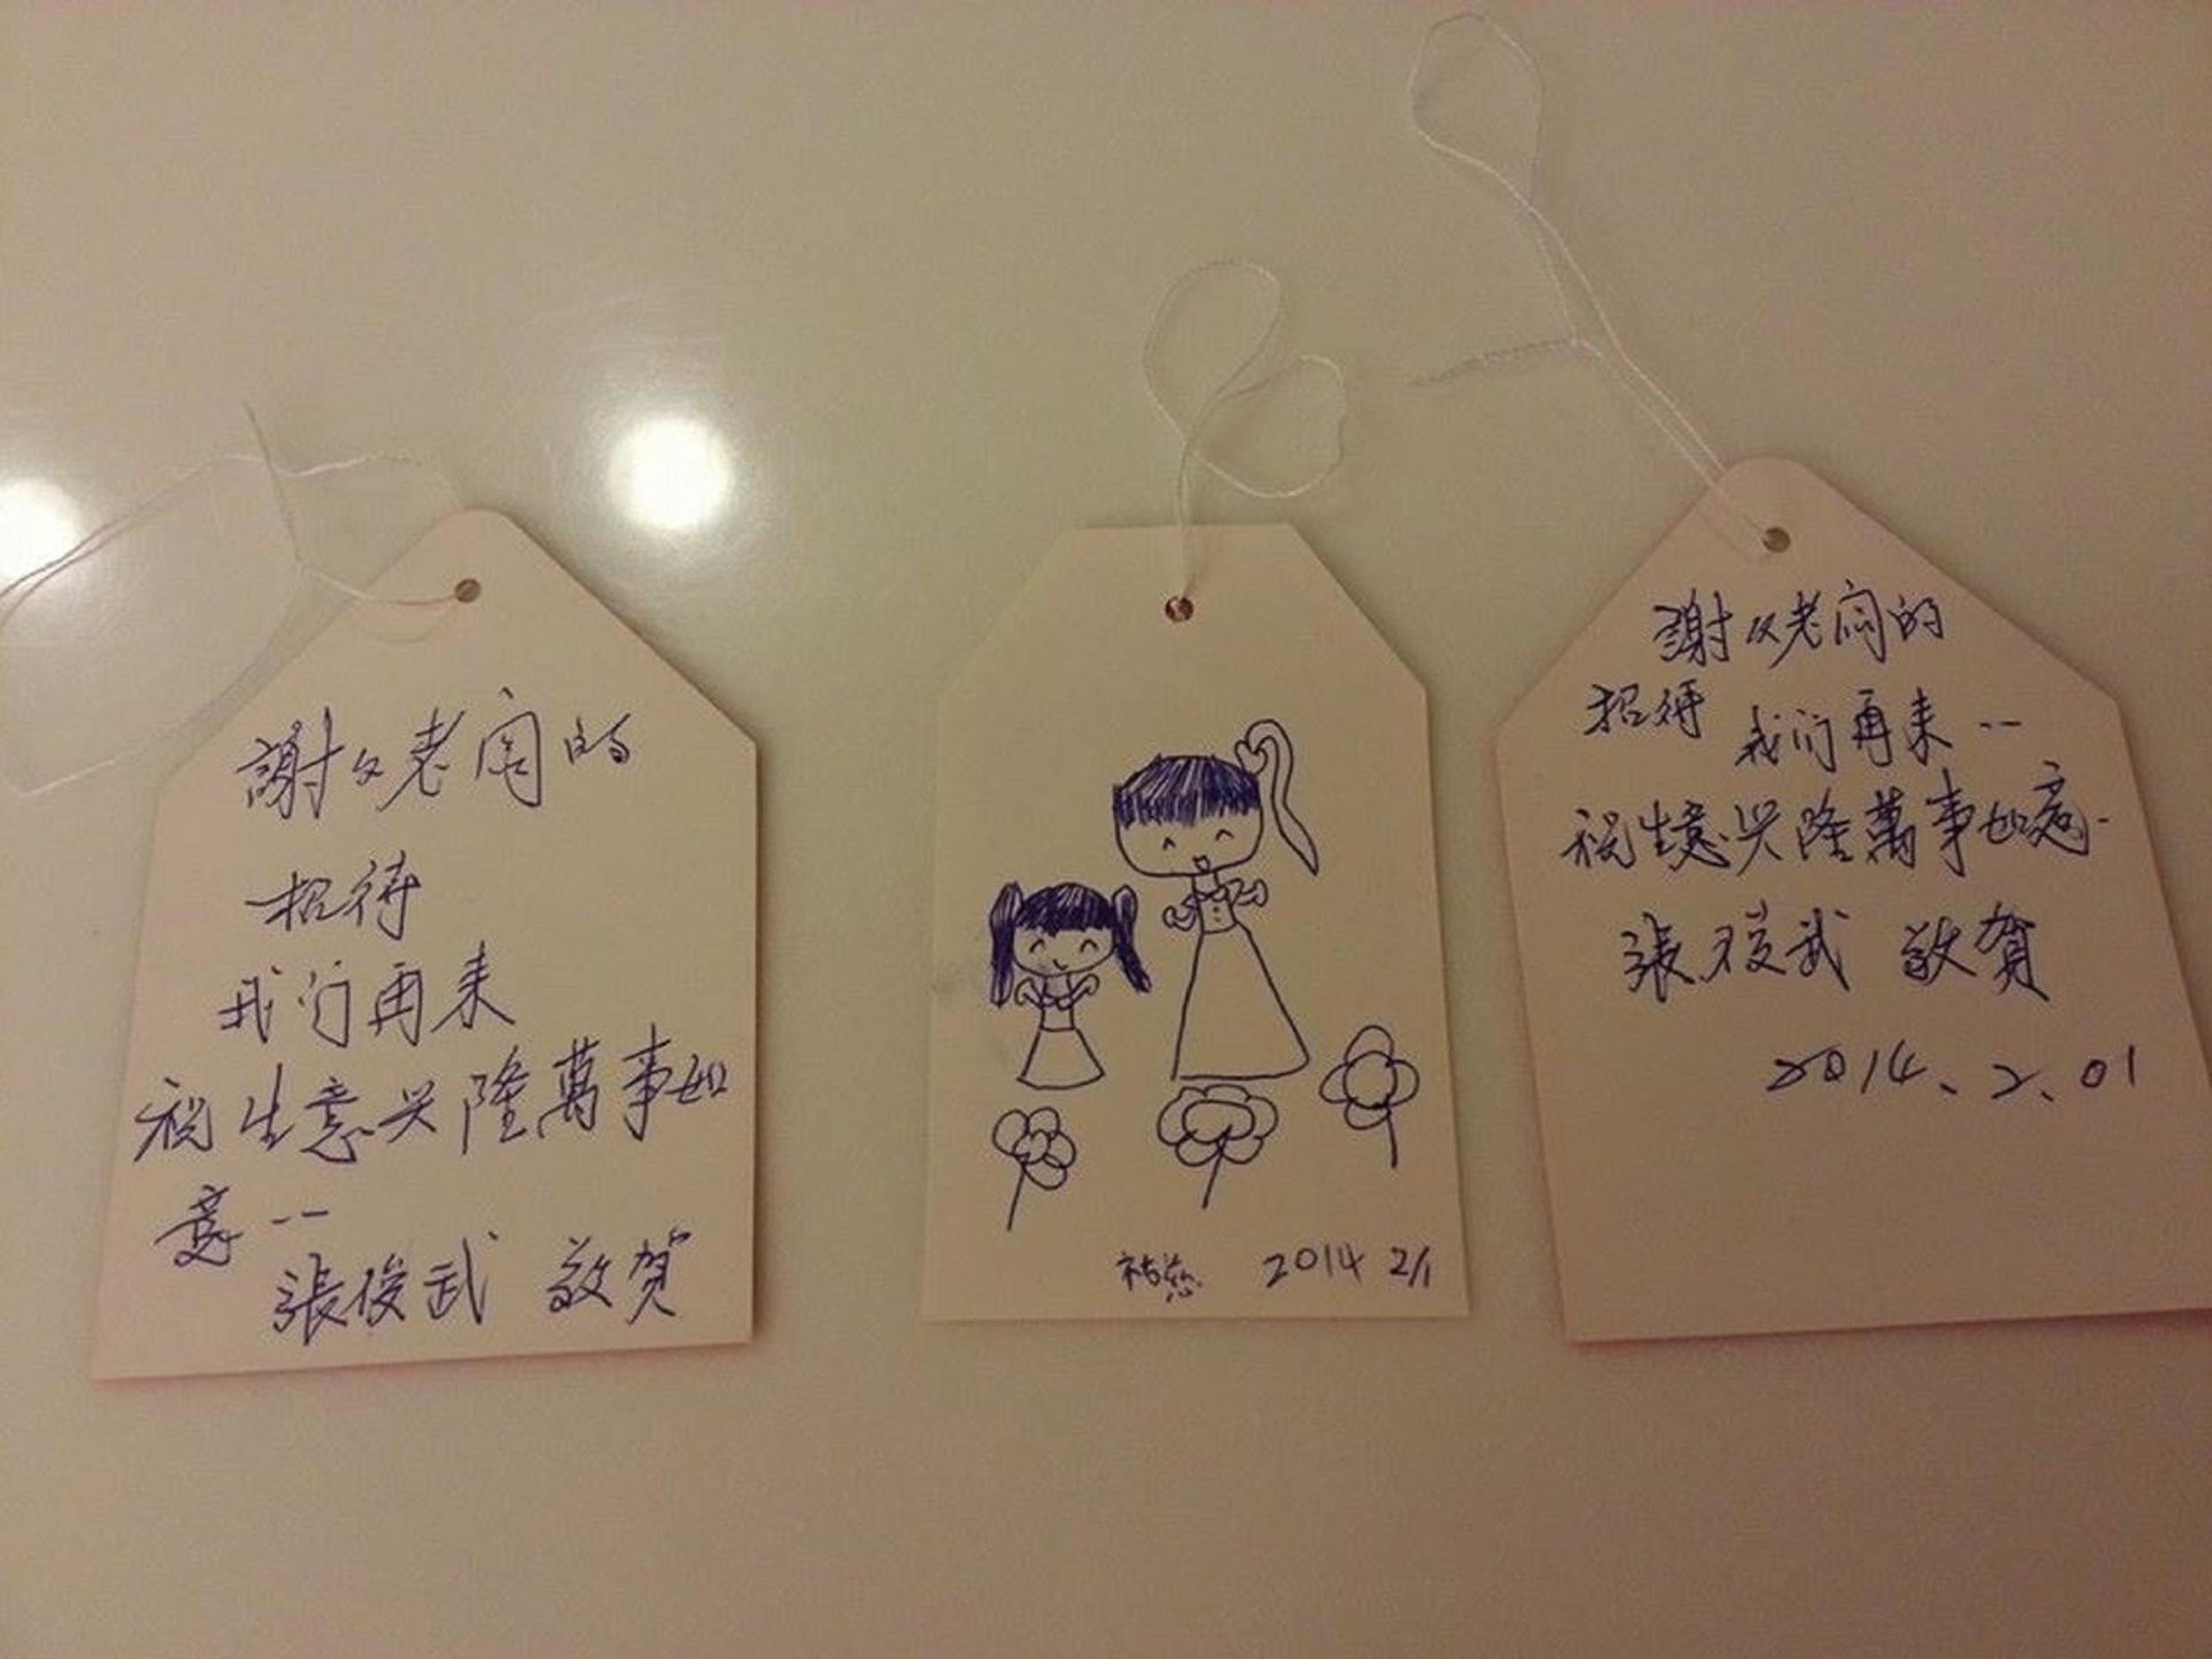 謝々老闆的
招待
我们再来
祝生意兴隆萬事如
意--
張俊武 敬賀
祐慈 2014 2/1
謝々老闆的
招待 我们再来--
祝生意兴隆萬事如意-
張俊武 敬賀
2014.2.01